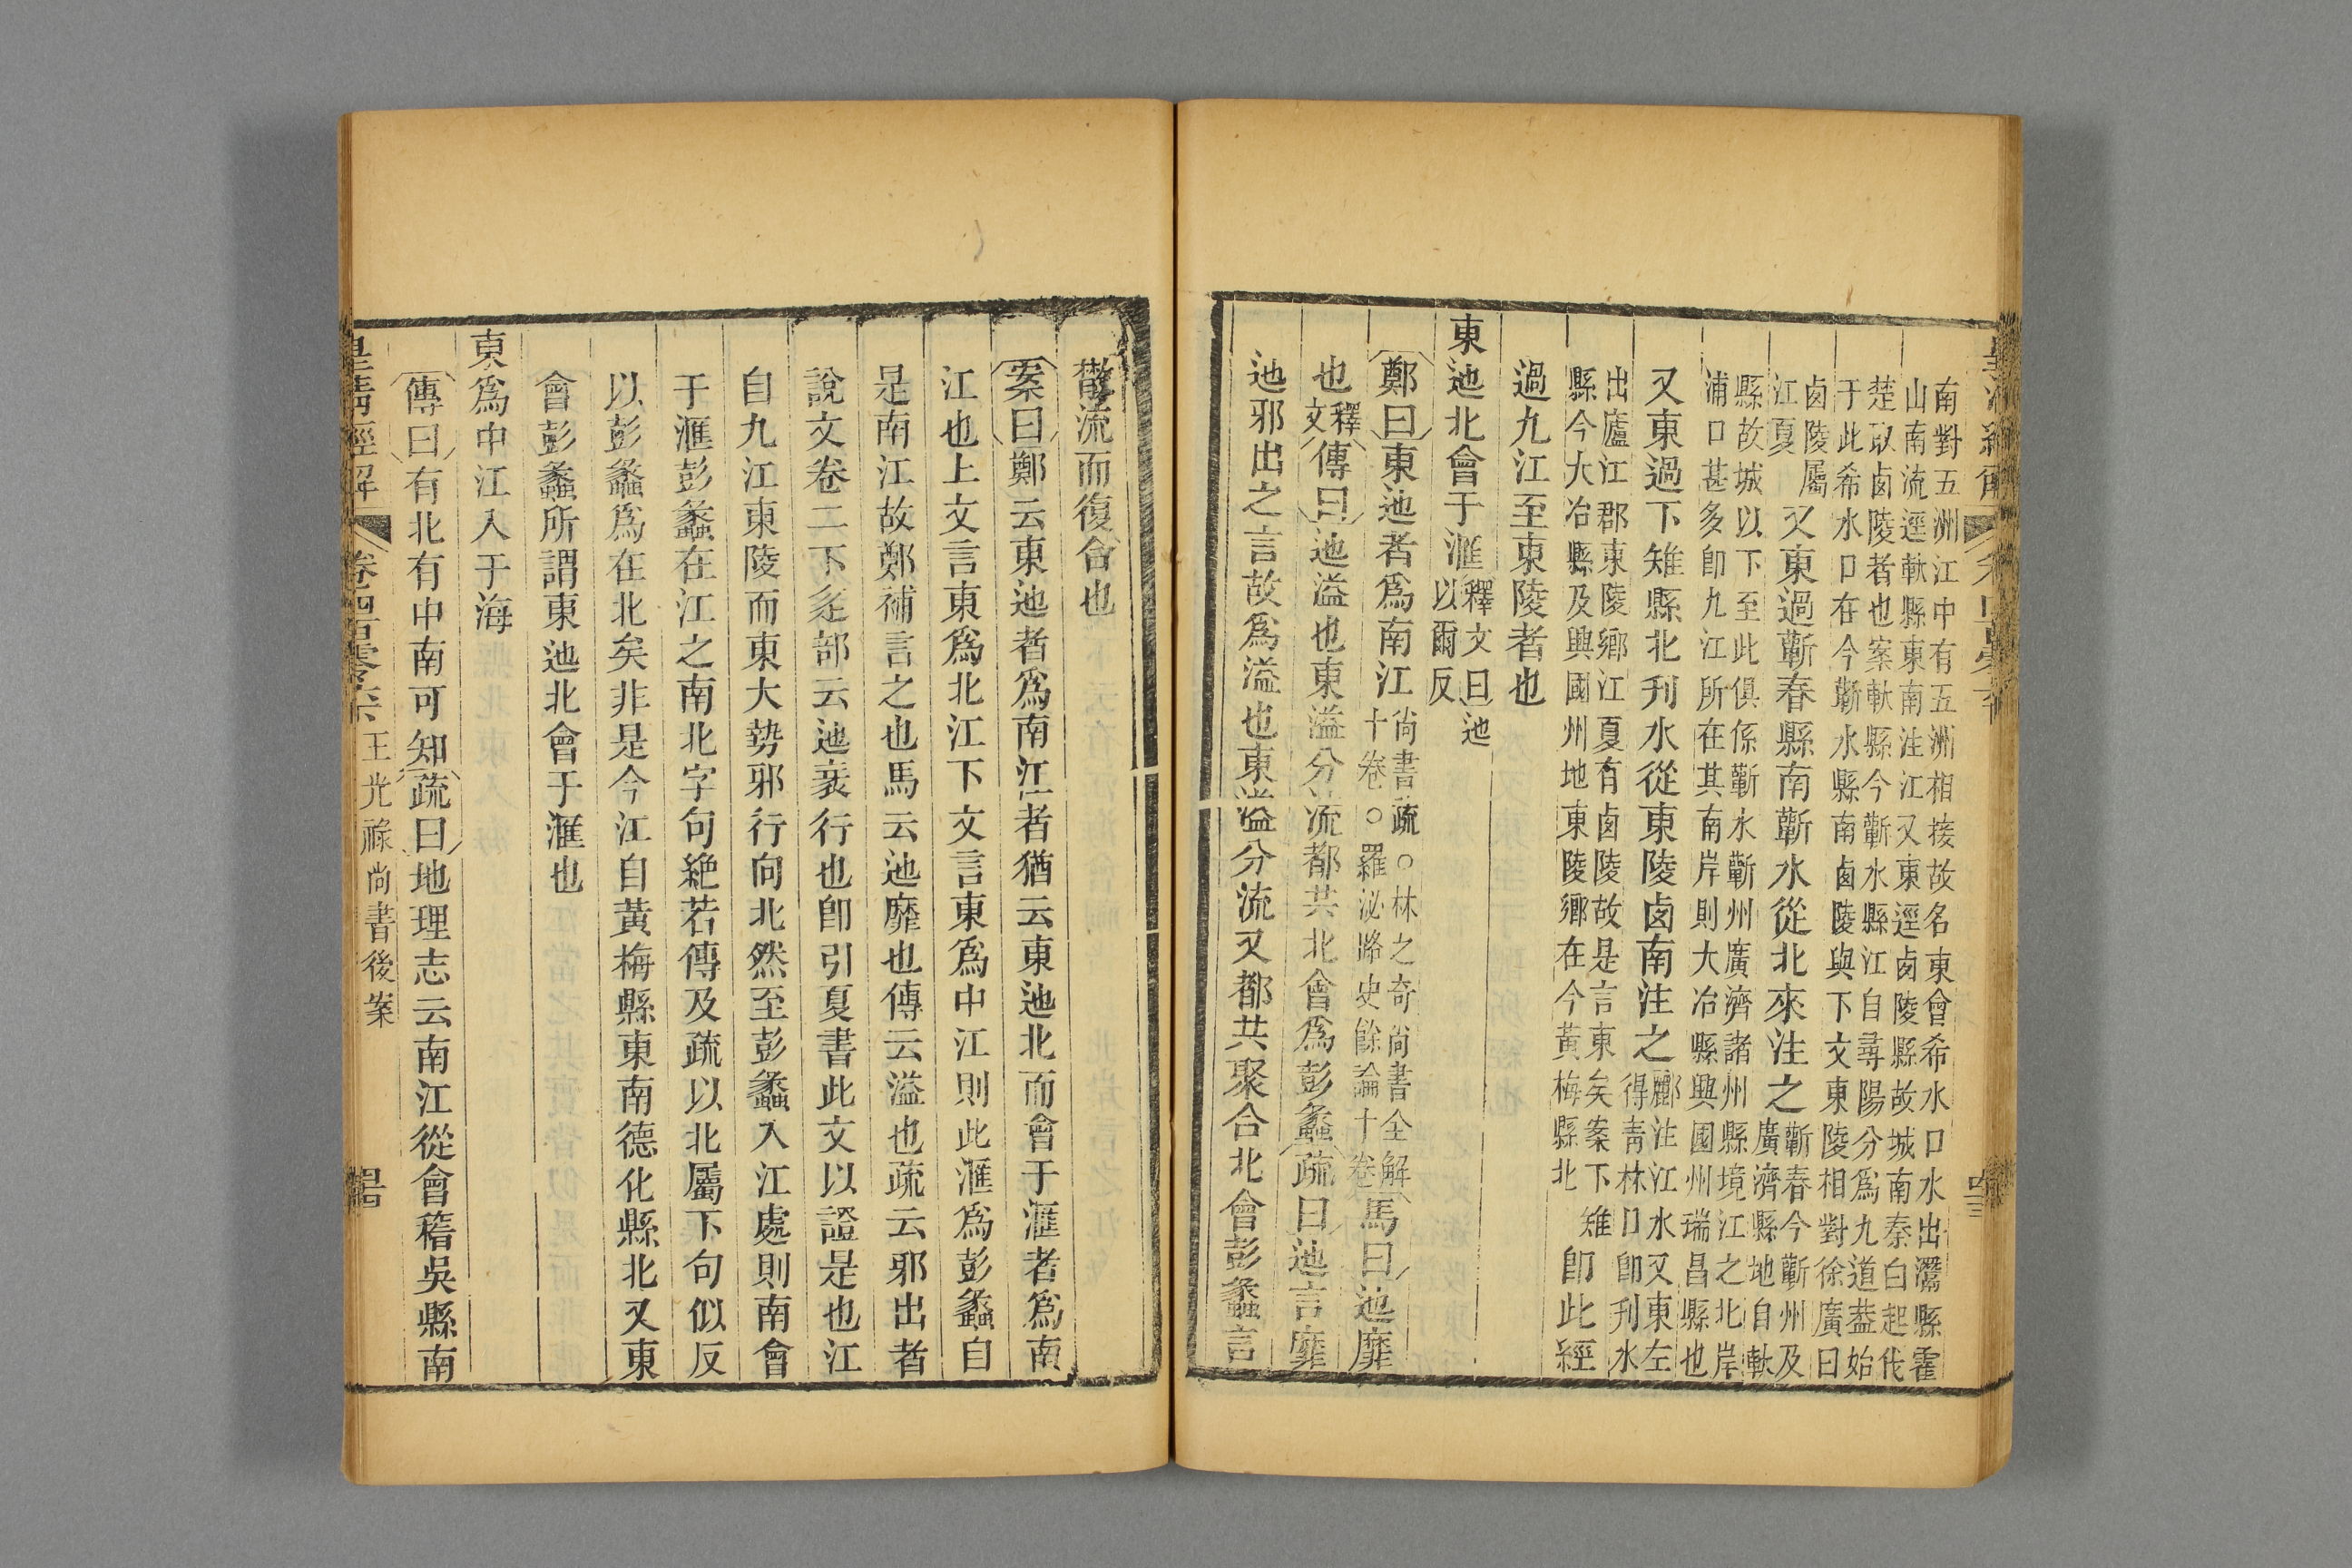 南對五洲江中有五洲相接故名東會希水口水出灊縣霍
山南流逕軑縣東南注江又東逕鹵陵縣故城南秦白起伐
楚取鹵陵者也案軑縣今蘄水縣江自尋陽分爲九道葢始
于此希水口在今蘄水縣南鹵陵與下文東陵相對徐廣曰
鹵陵屬
江夏
又東過蘄春縣南蘄水從北來注之
蘄春今蘄州及
廣濟縣地自軑
縣故城以下至此俱係蘄水蘄州廣濟諸州縣境江之北岸
浦口甚多卽九江所在其南岸則大冶縣興國州瑞昌縣也
又東過下雉縣北刋水從東陵鹵南注之
酈注江水又東左
得靑林口卽刋水
出廬江郡東陵鄉江夏有鹵陵故是言東矣案下雉
縣今大冶縣及興國州地東陵鄉在今黃梅縣北
卽此經
過九江至東陵者也
東迆北會于滙
釋文曰迆
以爾反
鄭曰東迆者爲南江
尚書疏○林之奇尚書全解
十卷○羅泌路史餘論十卷
馬曰迆靡
也
釋
文
傳曰迆溢也東溢分流都共北會爲彭蠡疏曰迆言靡
迆邪出之言故爲溢也東溢分流又都共聚合北會彭蠡言
散流而復合也
案曰鄭云東迆者爲南江者猶云東迆北而會于滙者爲南
江也上文言東爲北江下文言東爲中江則此滙爲彭蠡自
是南江故鄭補言之也馬云迆靡也傳云溢也疏云邪出者
說文卷二下辵部云迆衺行也卽引夏書此文以證是也江
自九江東陵而東大勢邪行向北然至彭蠡入江處則南會
于滙彭蠡在江之南北字句絶若傳及疏以北屬下句似反
以彭蠡爲在北矣非是今江自黃梅縣東南德化縣北又東
會彭蠡所謂東迆北會于滙也
東爲中江入于海
傳曰有北有中南可知疏曰地理志云南江從會稽吳縣南
皇淸經解 卷四百零六 王光祿尚書後案